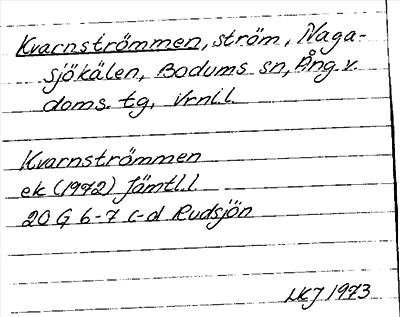 Kvarnströmmen, ström, Naga-
sjökälen, Bodums sn, Ång. v.
doms. tg, Vrnl.l.
Kvarnströmmen
ek (1972) Jämtl.l
20 G 6-7 c-d Rudsjön
1973